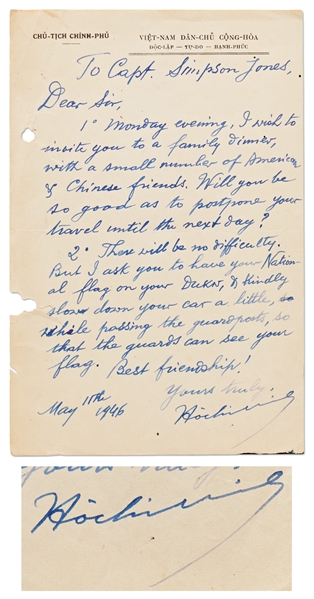 CHỦ-TỊCH CHÍNH-PHỦ
VIỆT-NAM DÂN-CHỦ CỘNG-HÒA
ĐỘC-LẬP — TỰ-DO — HẠNH-PHÚC
To Capt. Simpson Jones,
Dear Sir,
1º Monday evening, I wish to
invite you to a family dinner,
with a small number of American
& Chinese friends. Will you be
so good as to postpone your
travel until the next day?
2º There will be no difficulty.
But I ask you to have your Nation-
al flag on your & kindly
slow down your car a little,
while passing the guardposts, so
that the guards can see your
flag. Best friendship!
Yours truly.
May 11th 1946
Hồchiminh
Yours truly.
Hồchiminh